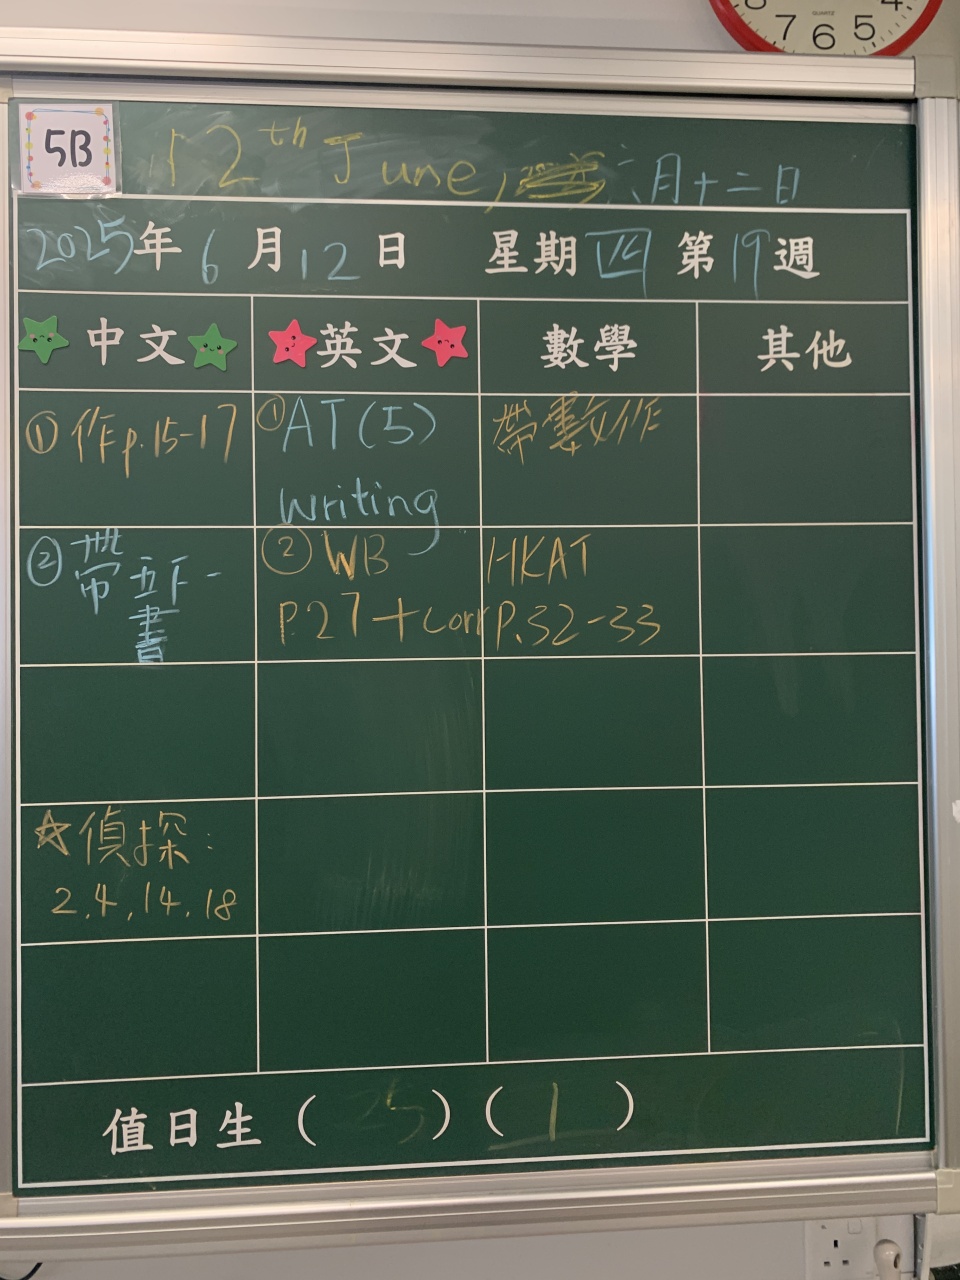 7 6 5 4
QUARTZ
5B
12th June, 六月十二日
2025年6月12日 星期四 第19週
中文 英文 數學 其他
①作p.15-17 ①AT(5) 帶數作
writing
②帶五下一 ②WB HKAT
書 P.27+corr P.32-33
☆偵探:
2.4.14.18
值日生( 25 )( 1 )